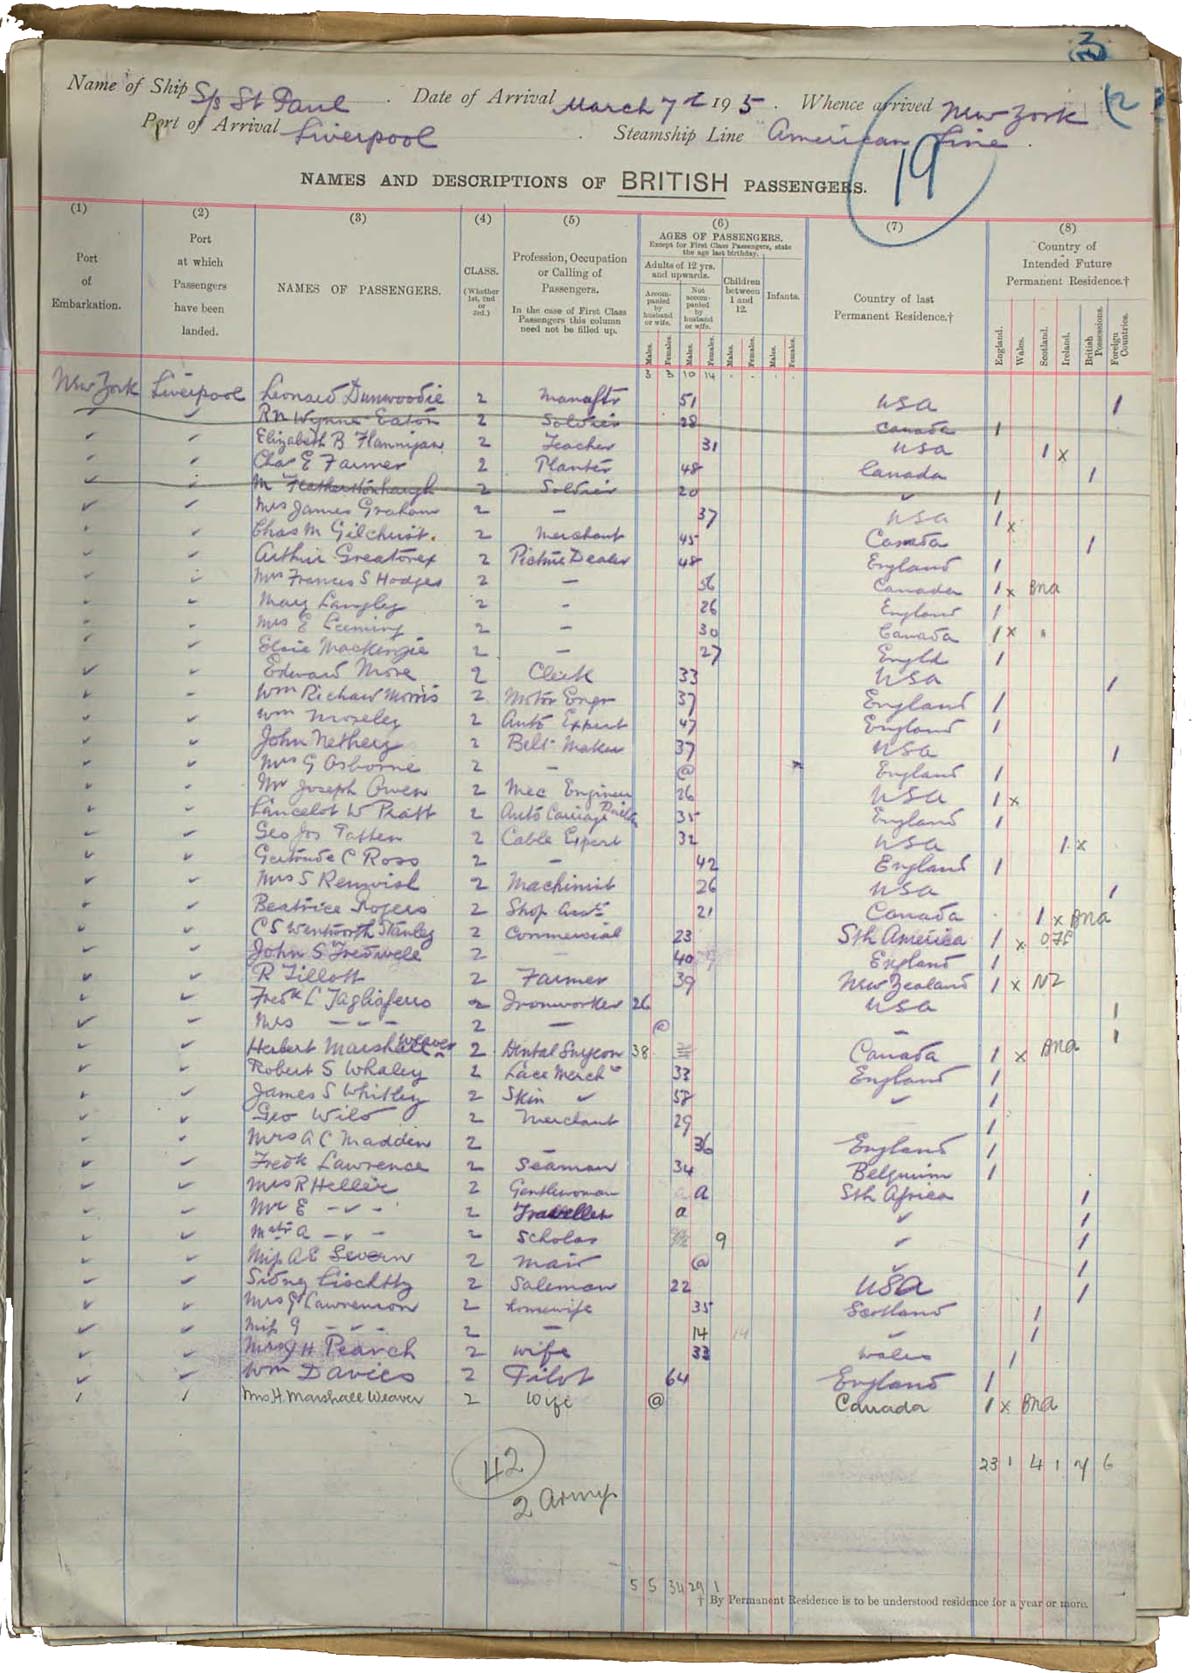 3
Name of Ship S/s St Paul . Date of Arrival March 7th 1915 . Whence arrived New York 12
Port of Arrival Liverpool . Steamship Line American Line .
19
NAMES AND DESCRIPTIONS OF BRITISH PASSENGERS.
(1) (2) (3) (4) (5) (6) (7) (8)
Port of Embarkation.
Port at which Passengers have been landed.
NAMES OF PASSENGERS.
CLASS. (Whether 1st, 2nd or 3rd.)
Profession, Occupation or Calling of Passengers.
In the case of First Class Passengers this column need not be filled up.
AGES OF PASSENGERS.
Except for First Class Passengers, state the age last birthday.
Adults of 12 yrs. and upwards.
Accompanied by husband or wife.
Not accompanied by husband or wife.
Children between 1 and 12.
Infants.
Males. Females. Males. Females. Males. Females. Males. Females.
Country of last Permanent Residence.†
Country of Intended Future Permanent Residence.†
England. Wales. Scotland. Ireland. British Possessions. Foreign Countries.
3 3 10 14 . . . .
New York Liverpool Leonard Dunwoodie 2 Manaftr 51 USA 1
R N Wynne Eaton 2 Soldier 28 Canada 1
Elizabeth B Flannigan 2 Teacher 31 USA 1 x
Chas E Farmer 2 Planter 48 Canada 1
M Featherstonhaugh 2 Soldier 20 ✓ 1
Mrs James Graham 2 - 37 USA 1 x
Chas M Gilchrist. 2 Merchant 45 Canada 1
Arthur Greatorex 2 Picture Dealer 48 England 1
Mrs Frances S Hodges 2 - 56 Canada 1 x Bna
Mary Langley 2 - 26 England 1
Mrs E Leeming 2 - 30 Canada 1 x "
Elsie Mackenzie 2 - 27 Engld 1
Edward More 2 Clerk 33 USA 1
Wm Richard Morris 2 Motor Engr 37 England 1
Wm Moseley 2 Auto Expert 47 England 1
John Nethery 2 Belt Maker 37 USA 1
Mrs G Osborne 2 - @ x England 1
Mr Joseph Owen 2 Mec Engineer 26 USA 1 x
Lancelot W Pratt 2 Auto Carriage Builder 35 England 1
Geo Jos Patten 2 Cable Expert 32 USA 1 x
Gertrude C Ross 2 - 42 England 1
Mrs S Renwick 2 Machinist 26 USA 1
Beatrice Rogers 2 Shop Asst 21 Canada 1 x Bna
C S Wentworth Stanley 2 Commercial 23 Sth America 1 x
John S Tredwell 2 - 40 England 1
R Tillott 2 Farmer 39 New Zealand 1 x NZ
Fredk L Tagliaferro 2 Ironworker 26 USA 1
Mrs - - - 2 - @ - 1
Herbert Marshall Weaver 2 Dental Surgeon 38 Canada 1 x Bna
Robert S Whaley 2 Lace Merch 33 England 1
James S Whitley 2 Skin ✓ 58 ✓ 1
Geo Wild 2 Merchant 29 1
Mrs A C Madden 2 - 36 England 1
Fredk Lawrence 2 Seaman 34 Belguim 1
Mrs R Heller 2 Gentlewoman a Sth Africa 1
Mr E - ✓ - 2 Traveller a ✓ 1
Mstr A - ✓ - 2 Scholar 9 ✓ 1
Miss A E Severn 2 Maid @ 1
Sidney Lischtty 2 Saleman 22 USA 1
Mrs J Lawrenson 2 Housewife 35 Scotland 1
Miss G - ✓ - 2 - 14 ✓ 1
Mrs J H Pearch 2 Wife 33 Wales 1
Wm Davies 2 Pilot 64 England 1
Mrs H. Marshall Weaver 2 Wife @ Canada 1 x Bna
23 1 4 1 7 6
42
2 Army
5 5 34 29 1
† By Permanent Residence is to be understood residence for a year or more.